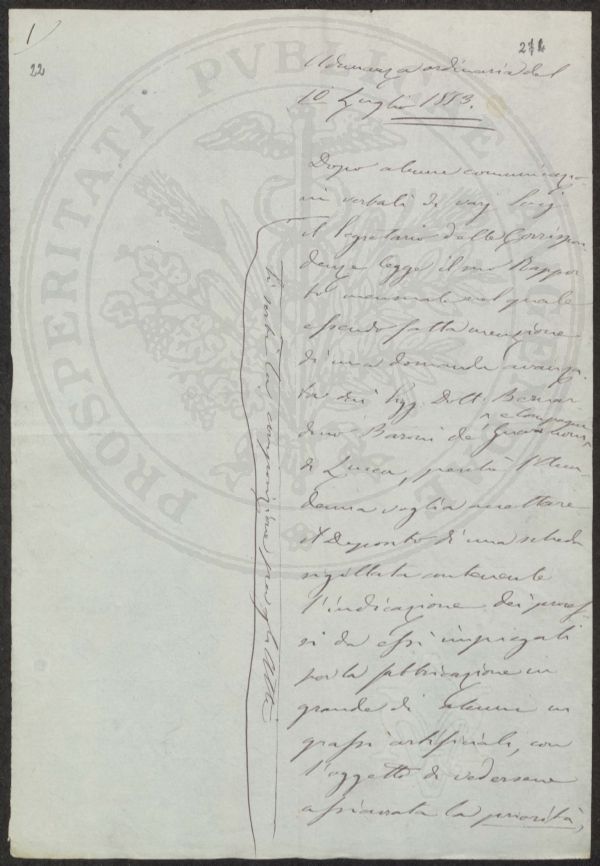 1
22
272
Adunanza ordinaria del
10 Luglio 1853.
Dopo alcune comunicazio-
ni verbali di varj Socj
il Segretario delle Corrispon-
denze legge il suo Rappor-
to mensuale nel quale
essendo fatta menzione
di una domanda avanza-
ta dai Sigg. Dott. Bernar-
e Compagni
dino Baroni de
di Lucca, perché l'Acca-
demia voglia accettare
il Deposito di una scheda
sigillata contenente
l'indicazione dei proces-
si da essi impiegati
per la fabbricazione in
grande di alcuni in
grassi artificiali, con
l'oggetto di vedersene
assicurata la priorità,
Atti
PROSPERITATI PVBLICAE AVGENDAE